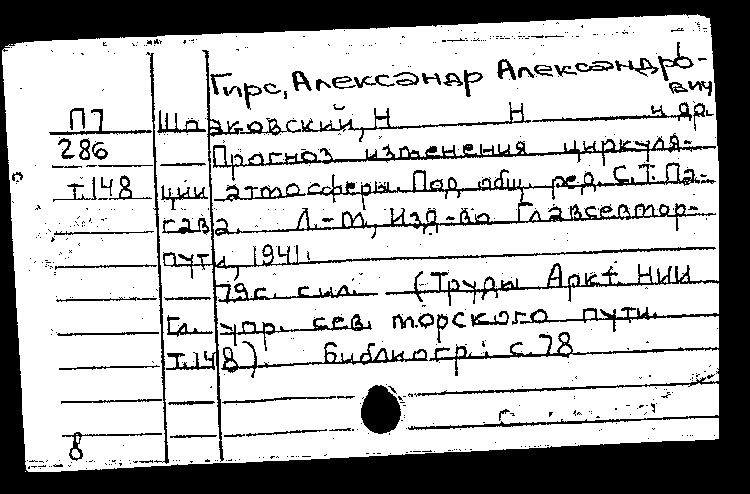 Гирс, Александр Александро-
вич
П7 Шпаковский, Н Н и др.
286 Прогноз изменения циркуля-
т.148 ции атмосферы. Под общ. ред. С.Т. Па-
гава. Л.-М., Изд-во Главсевмор-
пути, 1941.
79 с. с ил. (Труды Аркт. НИИ
Гл. упр. сев. морского пути.
т.148). Библиогр.: с. 78
8